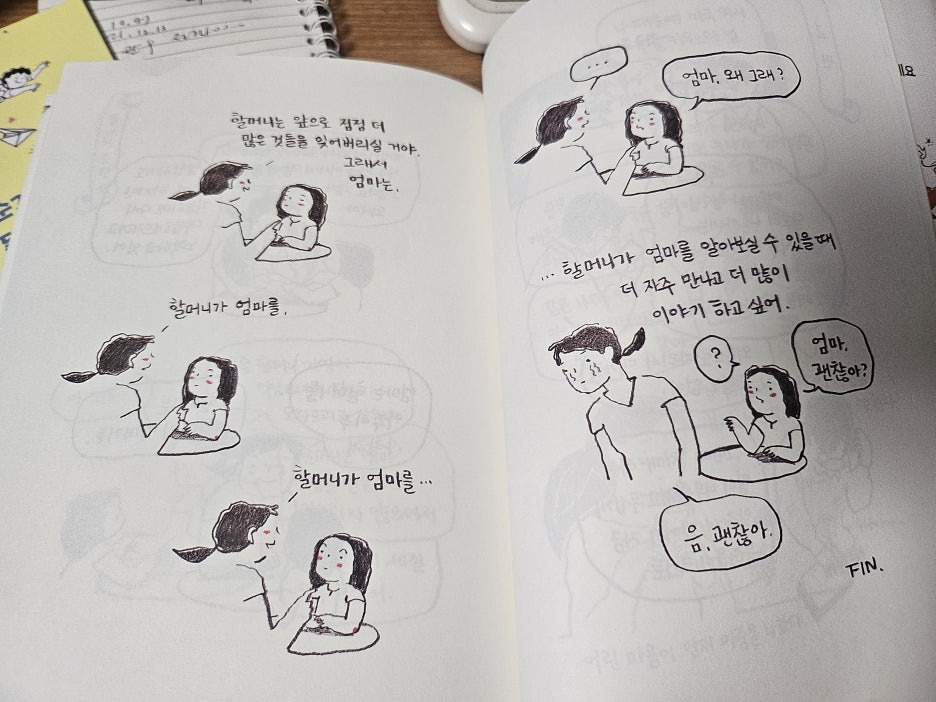 할머니는 앞으로 점점 더
많은 것들을 잊어버리실 거야.
그래서
엄마는,
할머니가 엄마를,
할머니가 엄마를...
...
엄마, 왜 그래?
... 할머니가 엄마를 알아보실 수 있을 때
더 자주 만나고 더 많이
이야기 하고 싶어.
?
엄마,
괜찮아?
음, 괜찮아.
FIN.
세요